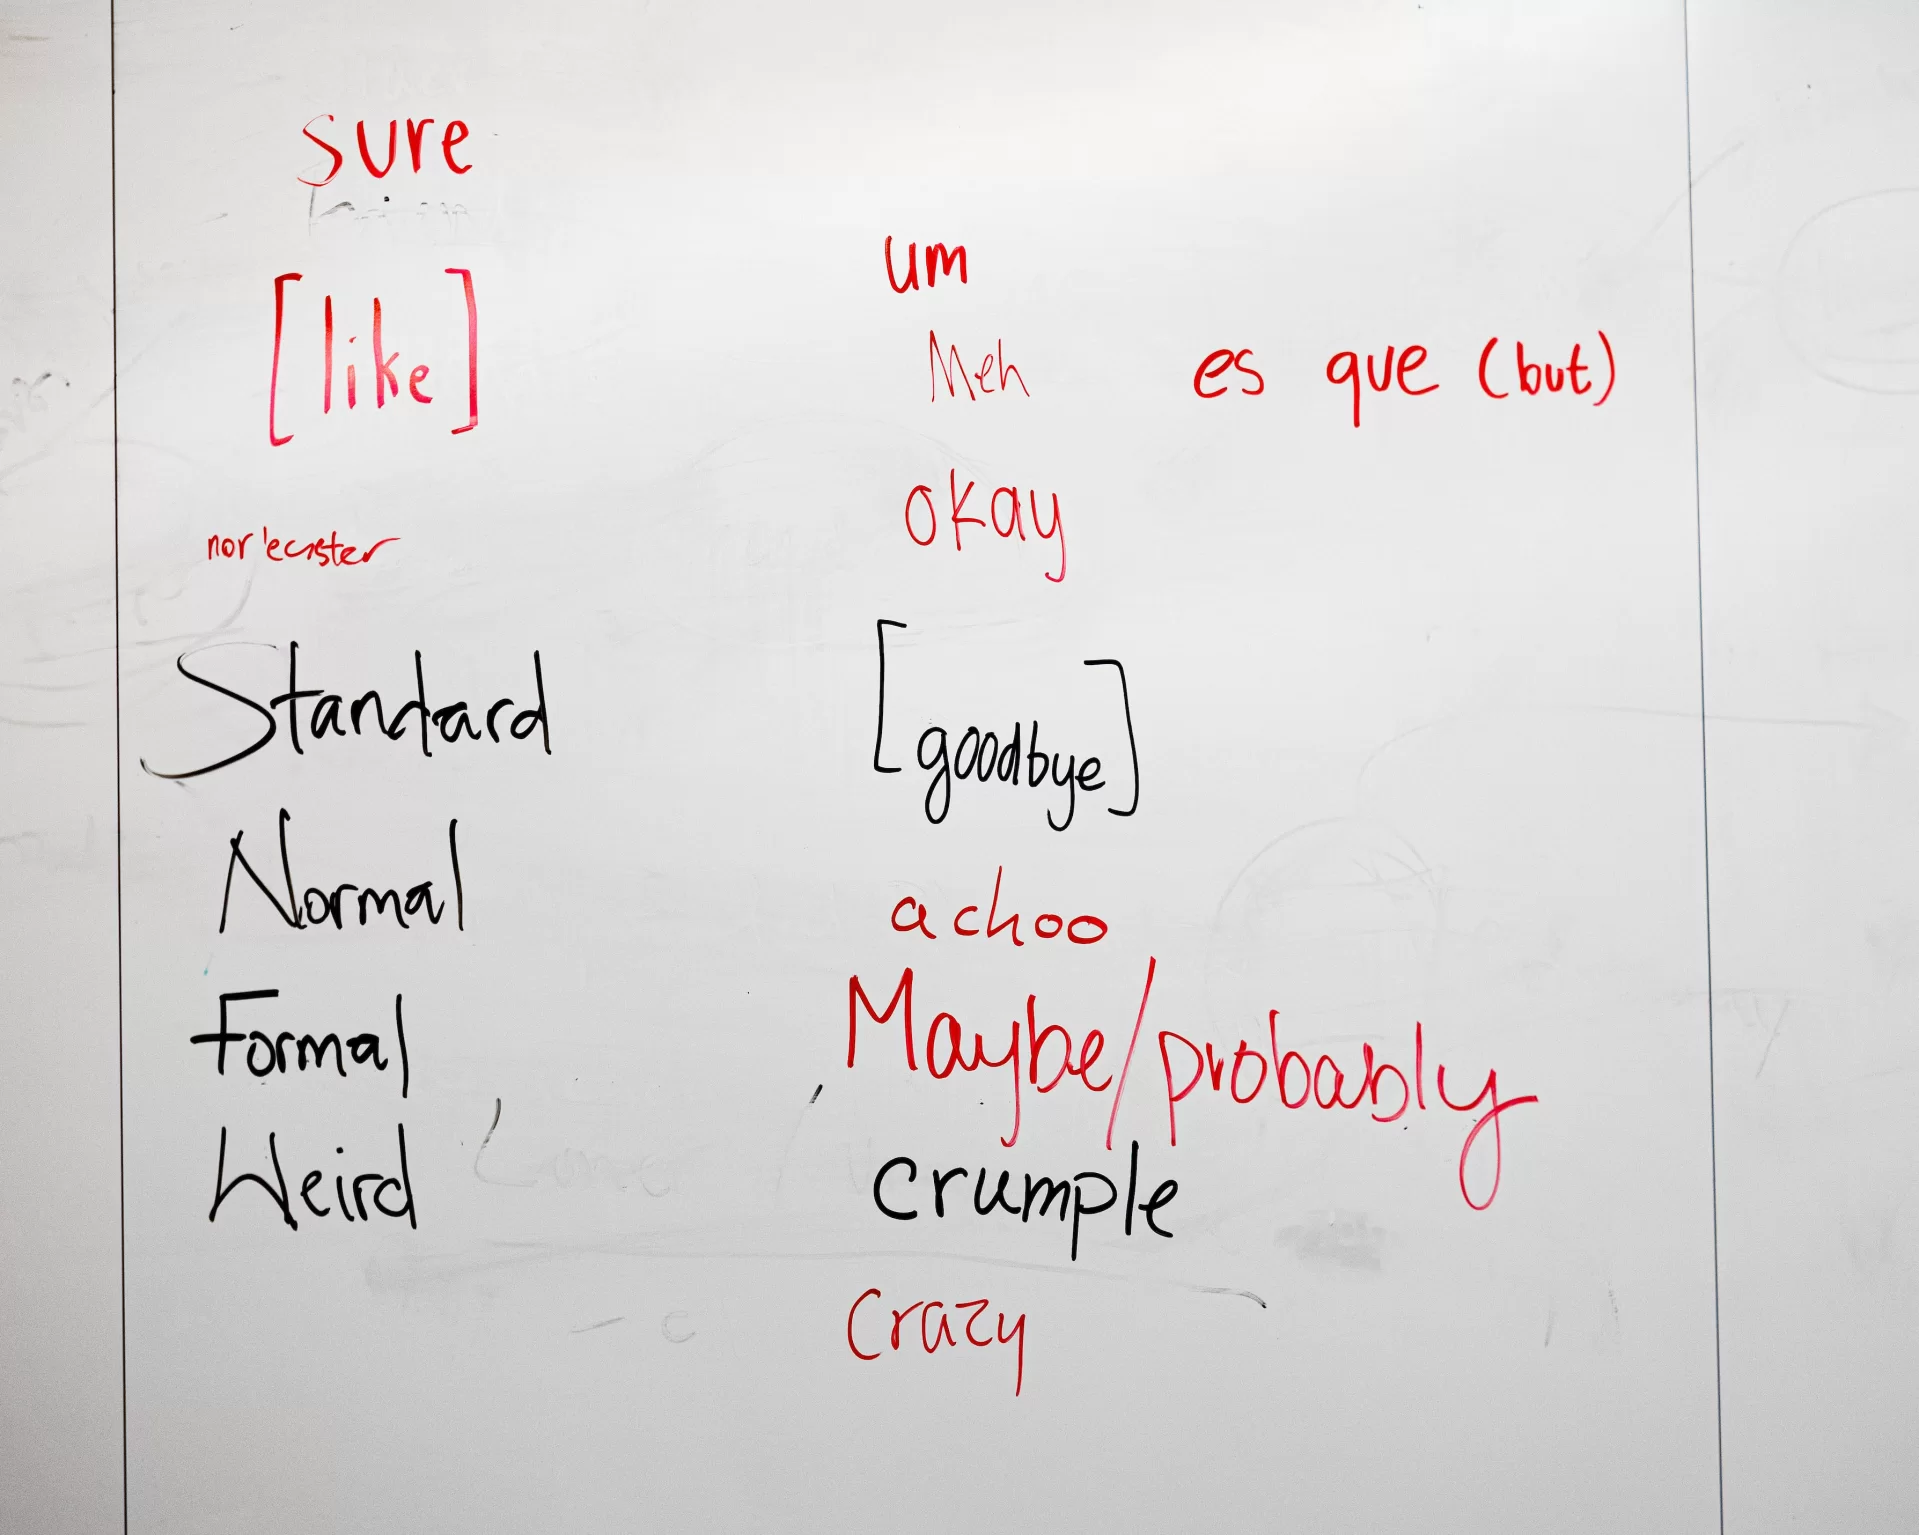 sure
[like]
nor'easter
Standard
Normal
Formal
Weird
um
Meh
es que (but)
okay
[goodbye]
achoo
Maybe/probably
crumple
Crazy